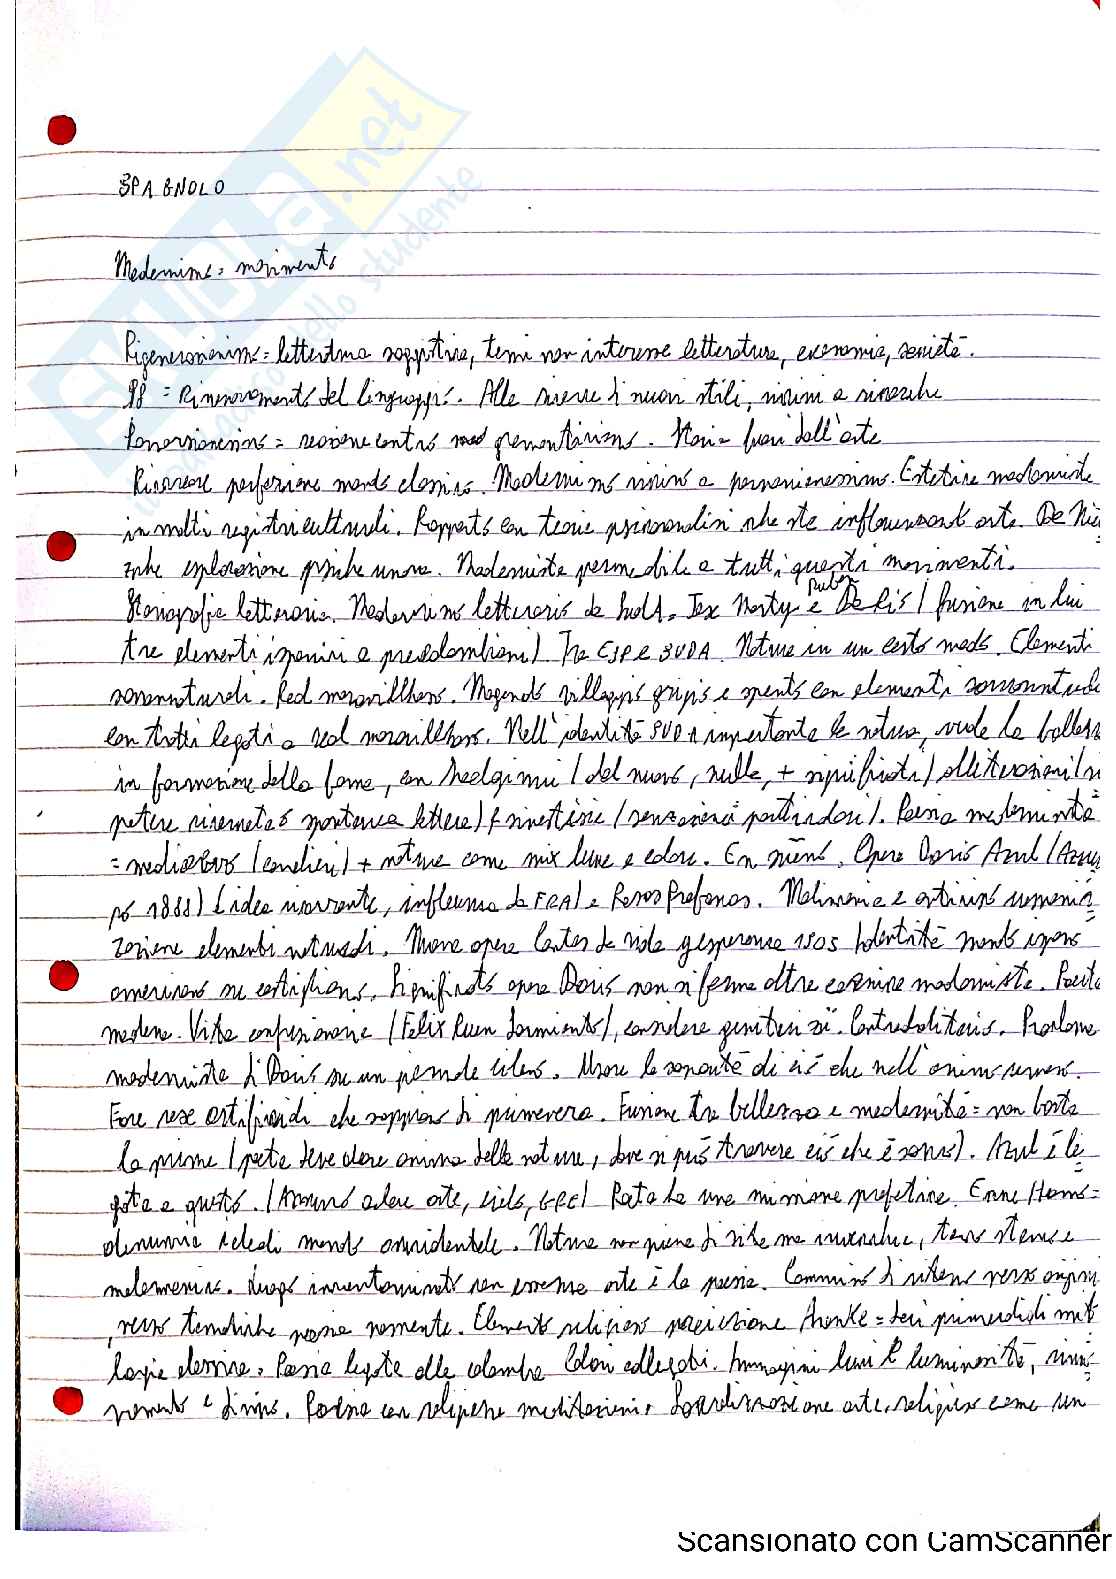 SPAGNOLO
Modernismo = movimento
Rigenerazionismo = letteratura soggettiva, temi non interesse letteratura, economia, società.
98 = Rinnovamento del linguaggio. Alla ricerca di nuovi stili, vicini a ricerche
Parnassianesimo = reazione contro romanticismo. Storia fuori dall'arte
Ricercare perfezione mondo classico. Modernismo vicino a parnassianesimo. Estetica modernista
in molti registri culturali. Rapporto con teorie psicoanalisi che sta influenzando arte. De Nie
zche esplorazione psiche umana. Modernista permeabile a tutti questi movimenti.
Storiografia letteraria. Modernismo letterario da SudA. Josè Marty e Ruben Dario (fusione in lui
tre elementi ispanici e precolombiani) Tra ESP e SUDA. Nature in un certo modo. Elementi
sovrannaturali. Real maravilloso. Macondo villaggio grigio e spento con elementi sovrannaturali
con tratti legati a real maravilloso. Nell'identità SUDA importante la natura, vuole la bellezza
in formazione della forma, con neologismi (del nuovo, nulla, + significati) allitterazioni (ri
petere ricorrente spontanea lettere) e sinestesie (sensazioni particolari). Poesia modernista
= medioevo (cavalieri) + natura come mix luce e colore. Opera Dario Azul (Azzur
ro 1888) (idea innovante, influenza da FRA) e Prosas Profanas. Malinconia e
zazione elementi naturali. Nuova opera Cantos de vida y esperanza 1905 Identità mondo ispano
americano su castigliano. Significato opera Dario non si ferma oltre cornice modernista. Poeta
moderno. Vita confusionaria (Felix Ruben Sarmiento), considera genitori zii. Contraddittorio. Proclama
modernista di Dario su un periodo libero. Usare la sonorità di ciò che nell'animo umano.
Fare rose artificiali che sappiano di primavera. Fusione tra bellezza e modernità = non basta
la prima (poeta deve dare anima della natura, dove si può trovare ciò che è sano). Azul è le
gata a questo. (Azzurro colore arte, cielo, GRE) Poeta ha una missione profetica. Enne Homo =
denuncia ideali mondo occidentale. Natura non piena di vita ma, tono stanco e
malinconico. Luogo incontaminato con essenza arte è la poesia. Cammino di ritorno verso origini
, verso tematiche poesia. Elemento religioso = dei primordiali mito
logia classica. Poesia legata alla colomba. Colori collegati. Immagini luci e luminosità,
e divino. Poesia con religione meditazioni. Socializzazione arte, religione come un
Scansionato con CamScanner